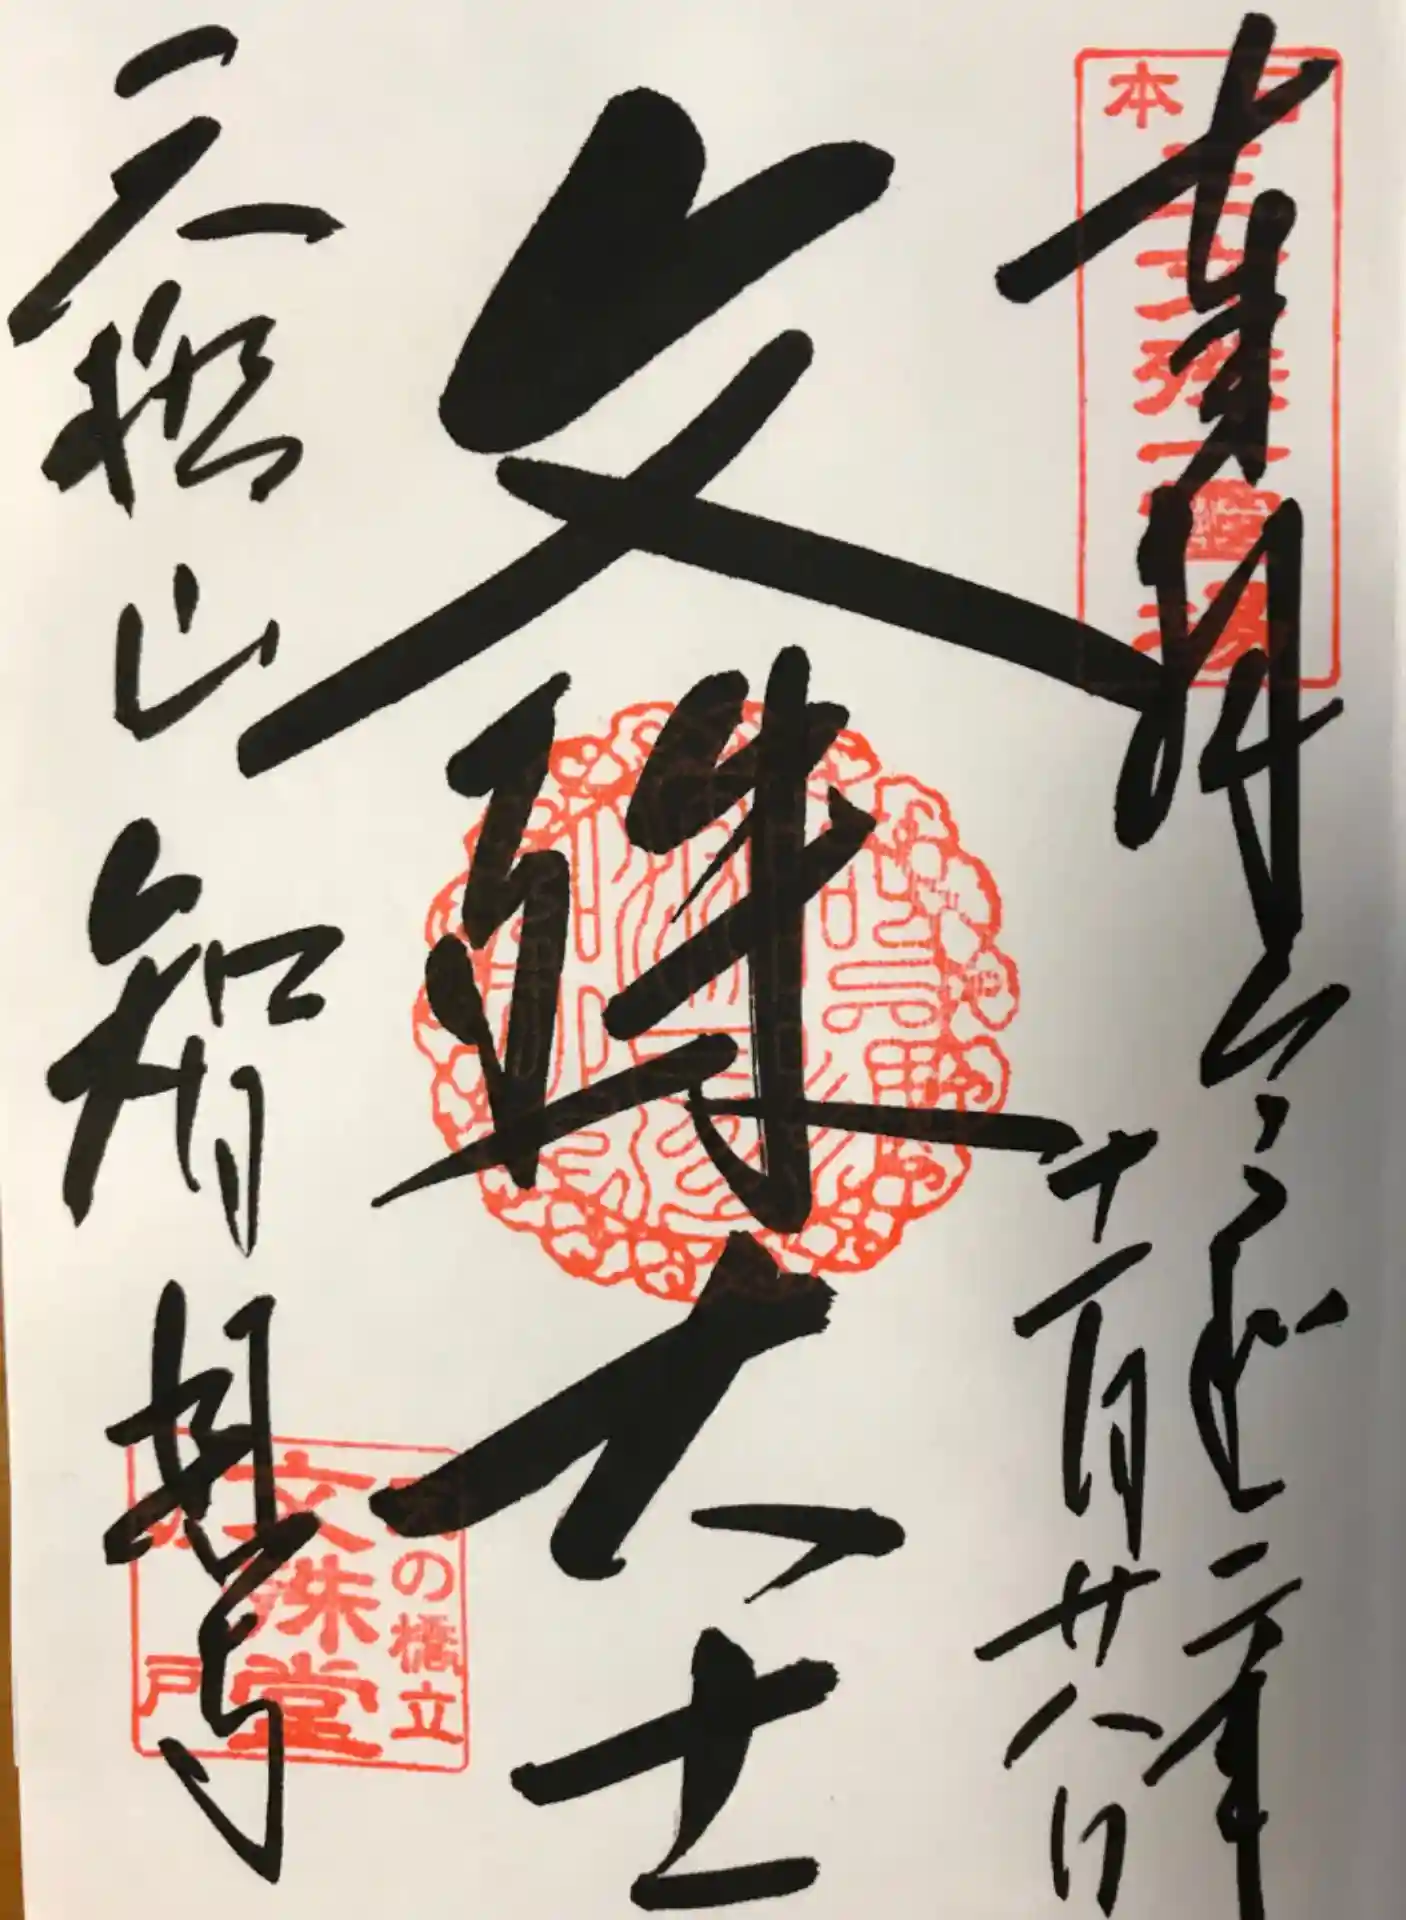 奉拝 令和二年
十一月廿八日
文殊大士
天橋山智恩寺
日本
三文殊第一霊場
天の橋立
文殊堂
切戸